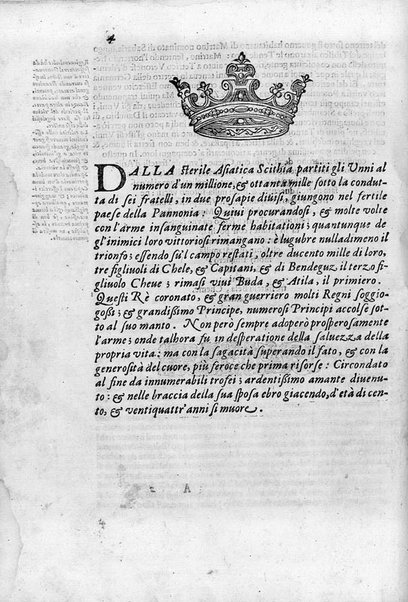 4
DALLA sterile Asiatica Scithia partiti gli Vnni al
numero d'un millione, & ottanta mille sotto la condut
ta di sei fratelli, in due prosapie diuisi, giungono nel fertile
paese della Pannonia: Quiui procurandosi, & molte volte
con l'arme insanguinate ferme habitationi; quantunque de
gl'inimici loro vittoriosi rimangano: è lugubre nulladimeno il
trionfo; essendo sul campo restati, oltre ducento mille di loro,
tre figliuoli di Chele, & Capitani, & di Bendeguz il terzo fi
gliuolo Cheue; rimasi viui Buda, & Atila, il primiero.
Questi Rè coronato, & gran guerriero molti Regni soggio-
gosi; & grandissimo Principe, numerosi Principi accolse sot-
to al suo manto. Non però sempre adoperò prosperosamente
l'arme; onde talhora fu in desperatione della saluezza della
propria vita: ma con la sagacità superando il fato, & con la
generosità del cuore, più feroce che prima risorse: Circondato
al fine da innumerabili trofei; ardentissimo amante diuenu-
to: & nelle braccia della sua sposa ebro giacendo, d'età di cen-
to, & ventiquattr'anni si muore.